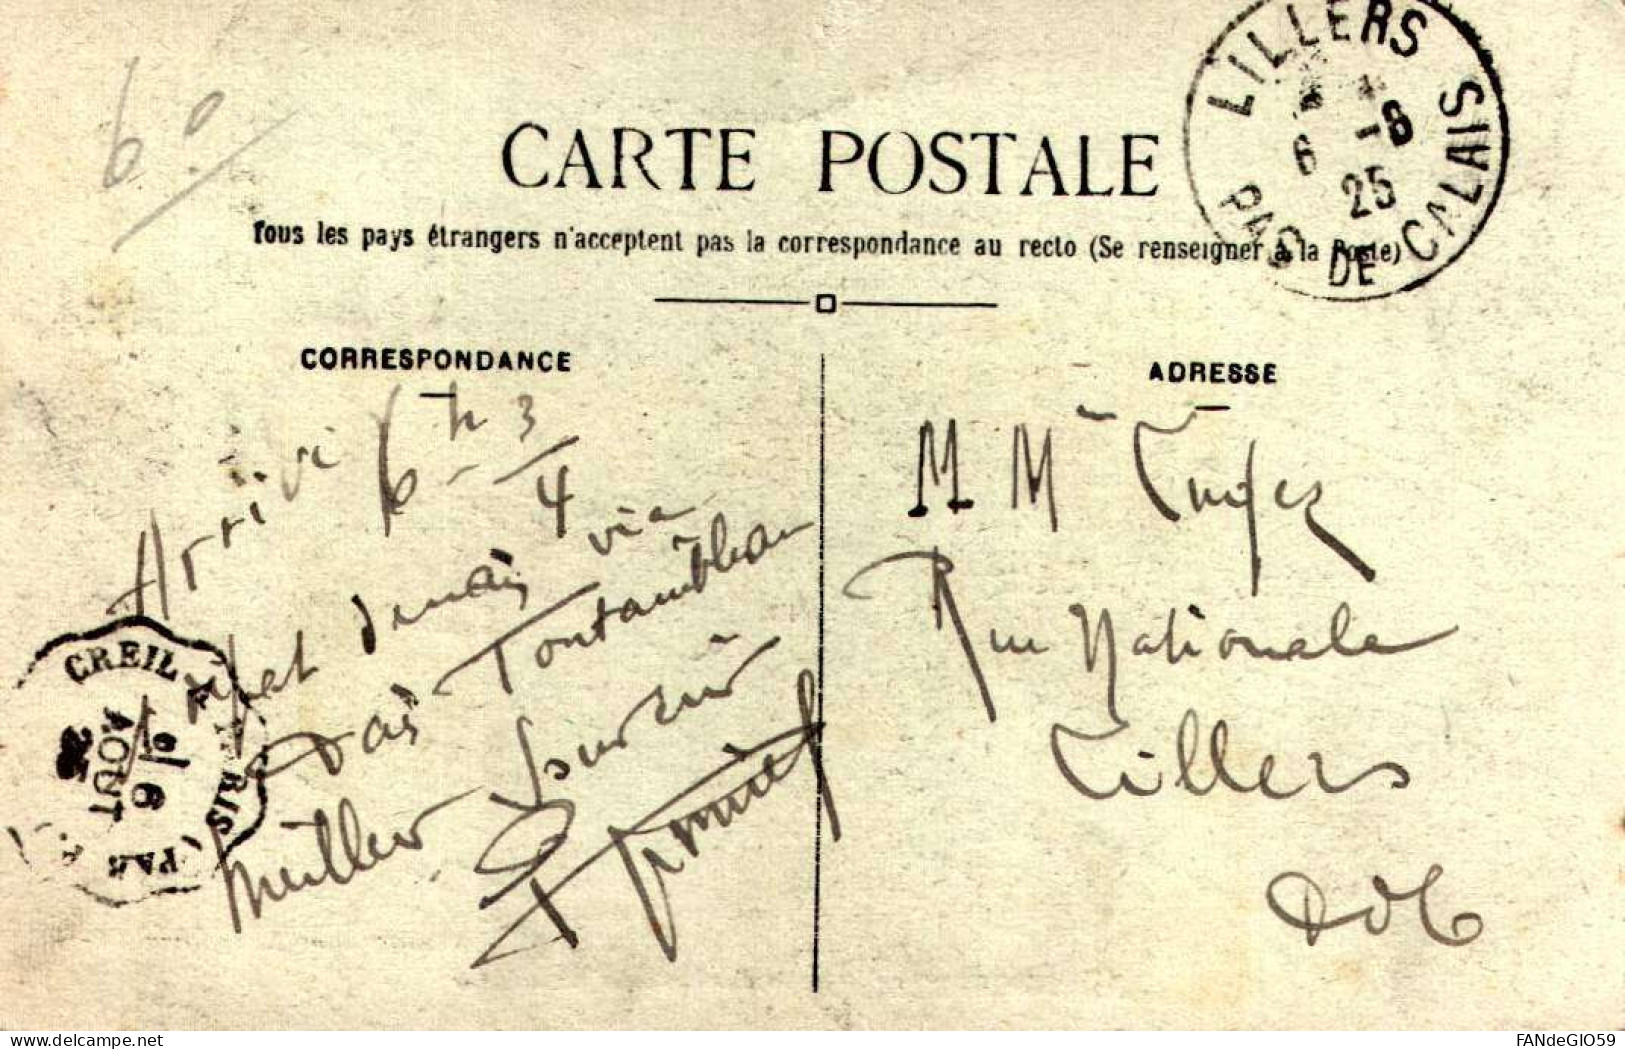 6°
CARTE POSTALE
Tous les pays étrangers n'acceptent pas la correspondance au recto (Se renseigner à la Poste)
LILLERS
6 -8
25
PAS DE CALAIS
CORRESPONDANCE
Arrivé 6h 3/4
via
Fontainebleau
Meilleur Souvenir
CREIL A PARIS (PAR
6
AOUT
25
ADRESSE
M Mme
Rue Nationale
Lillers
PdC
delcampe.net
FANdeGIO59